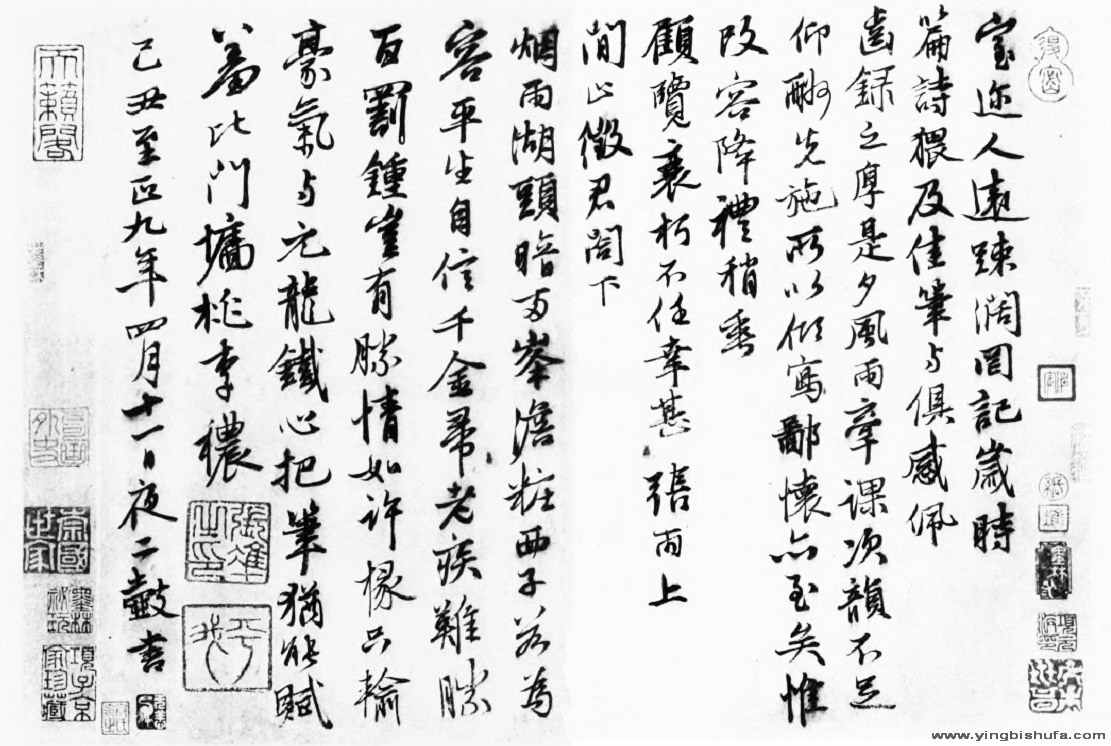 室迩人遠踈闊罔記歲時
篇詩猥及佳筆与俱感佩
齒録之厚是夕風雨牽課次韻不足
仰酬先施所以傾寫鄙懷亦至矣惟
改容降禮稍垂
顧覽衰朽不任幸甚張雨上
閒止徵君閤下
烟雨湖頭暗兩峯澹粧西子若為
容平生自信千金帚老疾難勝
百罰鍾崖有勝情如許椽只輸
豪氣与元龍鐵心把筆猶能賦
羞比門墻桃李穠
己丑至正九年四月十一日夜二鼓書
天籟閣
墨林秘玩
項子京家珍藏
www.yingbishufa.com